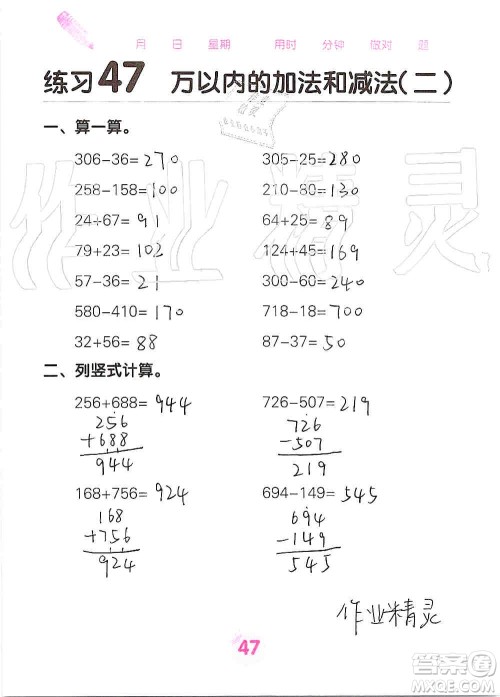 月 日 星期 用时 分钟 做对 题
练习47 万以内的加法和减法(二)
一、算一算。
306-36=270 305-25=280
258-158=100 210-80=130
24+67=91 64+25=89
79+23=102 124+45=169
57-36=21 300-60=240
580-410=170 718-18=700
32+56=88 87-37=50
二、列竖式计算。
256+688=944 726-507=219
256 726
+688 -507
944 219
168+756=924 694-149=545
168 694
+756 -149
924 545
作业精灵
47
作业精灵
答案圈
MXQE.COM